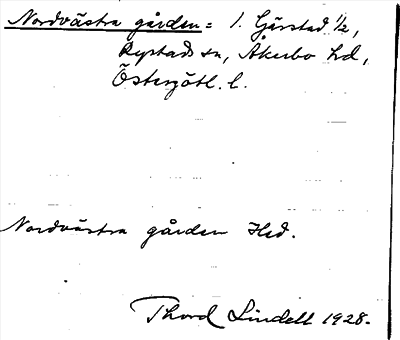 Nordvästra gården = 1. Gärstad 1/2,
Rystads sn, Åkerbo hd,
Östergötl. l.
Nordvästra gården Hsd.
Thord Lindell 1928.